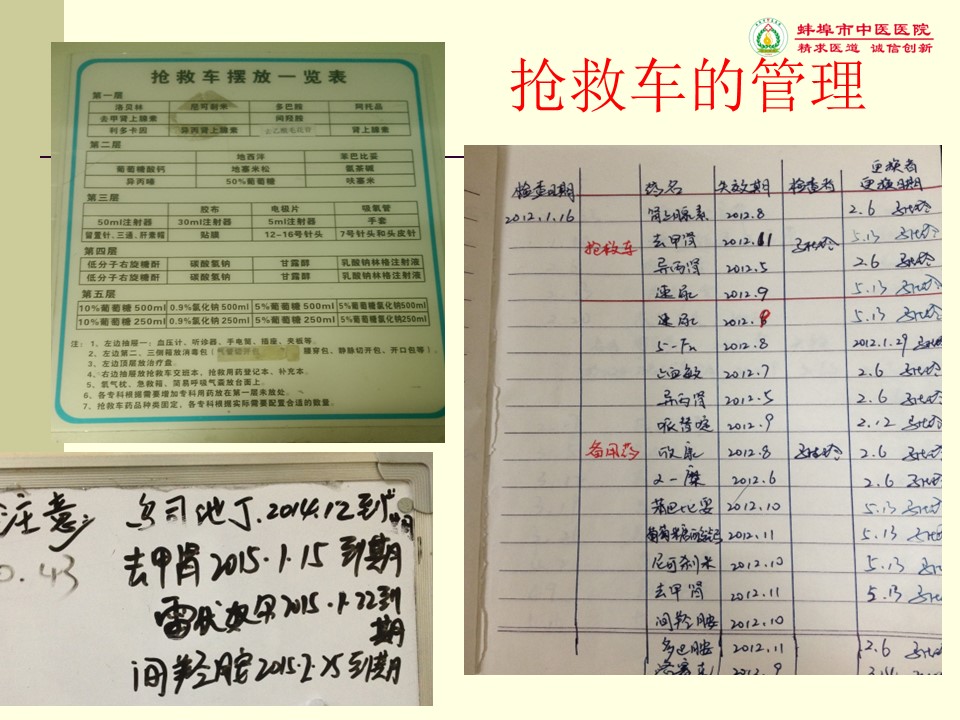 蚌埠市中医医院
精求医道 诚信创新
抢救车的管理
抢救车摆放一览表
第一层
洛贝林 尼可刹米 多巴胺 阿托品
去甲肾上腺素 间羟胺
利多卡因 异丙肾上腺素 去乙酰毛花苷 肾上腺素
第二层
地西泮 苯巴比妥
葡萄糖酸钙 地塞米松 氨茶碱
异丙嗪 50%葡萄糖 呋塞米
第三层
胶布 电极片 吸氧管
50ml注射器 30ml注射器 5ml注射器 手套
留置针、三通、肝素帽 贴膜 12-16号针头 7号针头和头皮针
第四层
低分子右旋糖酐 碳酸氢钠 甘露醇 乳酸钠林格注射液
低分子右旋糖酐 碳酸氢钠 甘露醇 乳酸钠林格注射液
第五层
10%葡萄糖500ml 0.9%氯化钠500ml 5%葡萄糖500ml 5%葡萄糖氯化钠500ml
10%葡萄糖250ml 0.9%氯化钠250ml 5%葡萄糖250ml 5%葡萄糖氯化钠250ml
注: 1、左边抽屉一:血压计、听诊器、手电筒、插座、夹板等。
2、左边第二、三侧箱放消毒包(气管切开包 腰穿包、静脉切开包、开口包等)。
3、左边顶层放治疗盘。
4、右边抽屉放抢救车交班本、抢救用药登记本、补充本。
5、氧气枕、急救箱、简易呼吸气囊放台面上。
6、各专科根据需要增加专科用药放在第一层未放处。
7、抢救车药品种类固定、各专科根据实际需要配置合适的数量。
注意 乌司他丁.2014.12到期
0.43 去甲肾2015.1.15到期
2015.1.22到期
间羟胺2015.2.25到期
检查日期 药名 失效期 检查者 更换者 更换日期
2012.1.16 肾上腺素 2012.8 2.6
抢救车 去甲肾 2012.11 5.13
异丙肾 2012.5 2.6
速尿 2012.9 5.13
速尿 2012.8 5.13
5-Fu 2012.8 2012.1.29
止血敏 2012.7 2.6
异丙肾 2012.5 2.6
哌替啶 2012.9 2.12
备用药 2012.8 2.6
2012.6 2.6
苯巴比妥 2012.10 5.13
葡萄糖酸钙 2012.11 5.13
尼可刹米 2012.10 5.13
去甲肾 2012.11 5.13
间羟胺 2012.10
多巴胺 2012.11 2.6
2012.9